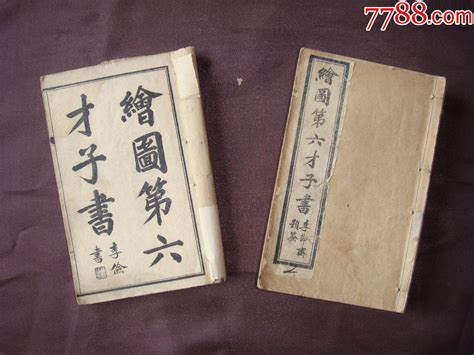 7788.com
繪圖第六
才子書
李
書
繪圖第六才子書
李